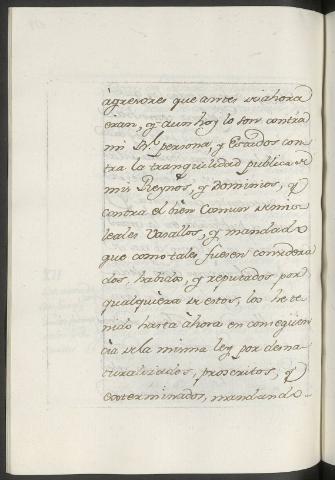 àgresores que antes de ahora
eran, y aun hoy lo son contra
mi Rl. persona, y Estados con
tra la tranquilidad publica de
mis Reynos, y Dominios, y
contra el bien Comun de mis
leales Vasallos, y mandado
que como tales fuesen considera
dos, habidos, y reputados por
qualquiera de estos, los he te
nido hasta àhora en conseqüen
cia de la misma ley por desna
turalizados, proscritos, y
exterminados, mandando